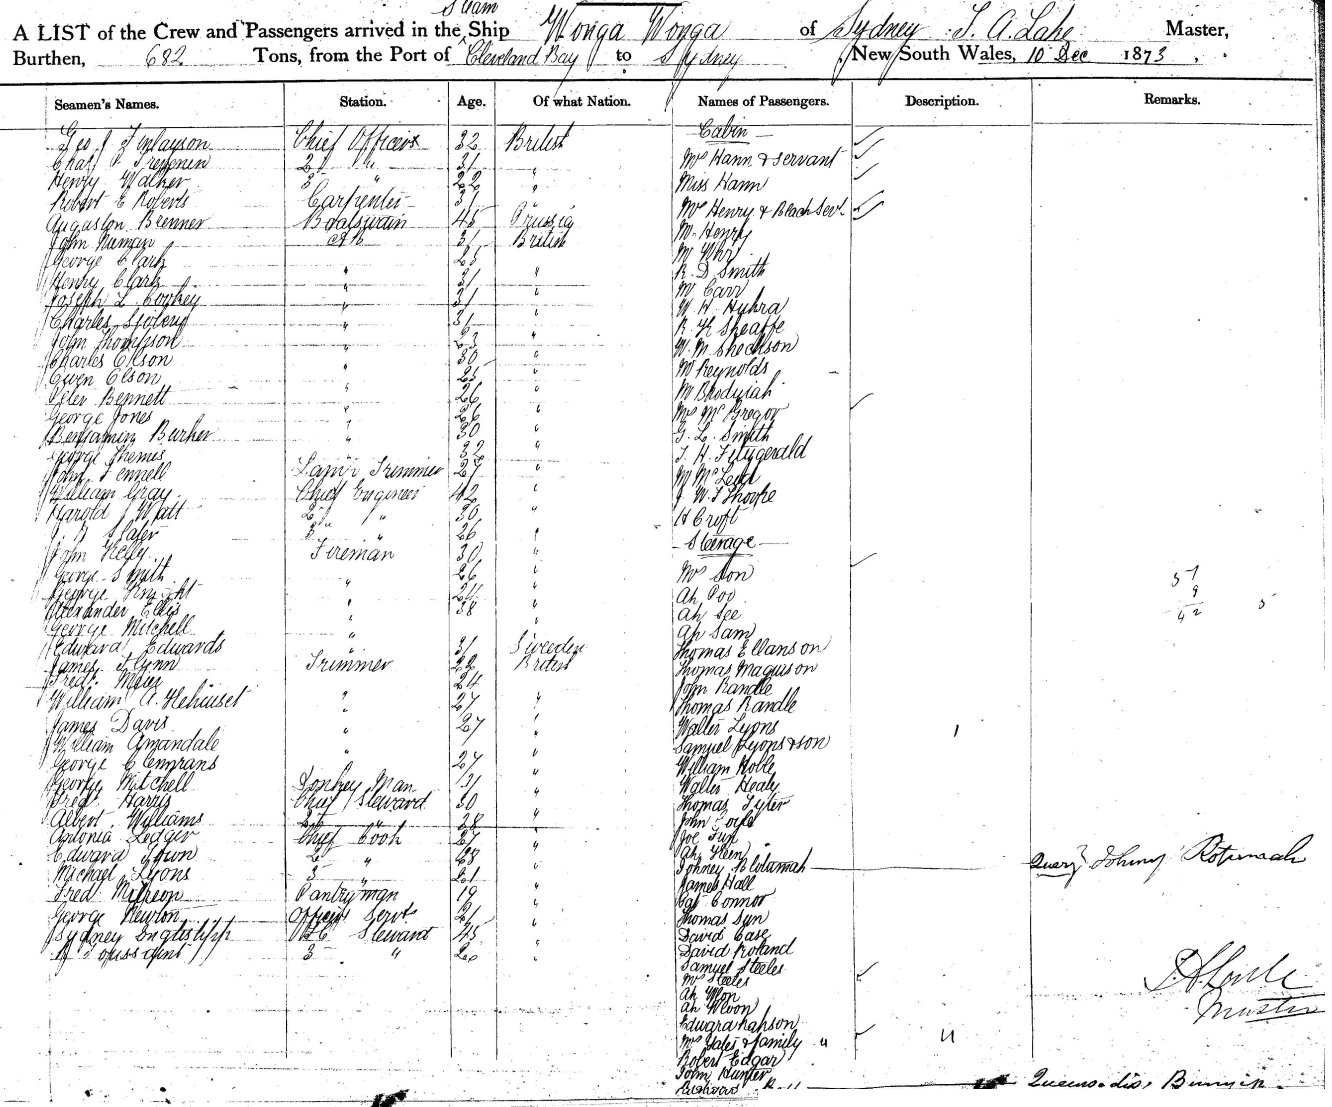 A LIST of the Crew and Passengers arrived in the Steam Ship Wonga Wonga of Sydney T. A. Lake Master,
Burthen, 682 Tons, from the Port of Cleveland Bay to Sydney New South Wales, 10 Dec 1873.
Seamen's Names. Station. Age. Of what Nation. Names of Passengers. Description. Remarks.
Geo J Finlayson Chief Officer 32 British
Cabin
Chas Tregenen 2 " 31 "
Mrs Hann & Servant
Henry Walker 3 " 22 "
Miss Hann
Robert E Roberts Carpenter 37 "
Mrs Henry & Black Servt
Augaston Brenner Boatswain 45 Prussia
Mr Henry
John Numan AB 31 British
George Clark 25
R. D Smith
Henry Clark " 31 "
Mr Carr
Joseph L. Corkey " 31 "
Charles " 31 "
R K Sheaffe
John Thompson " 23 "
W. M
Charles Olson " 30 "
Mr Reynolds
Owen Olson " 25 "
Mr
Peter Bennett " 26 "
Mrs McGregor
George Jones " 26 "
G. L. Smith
Benjamin Barker " 30 "
T. H. Fitzgerald
George Themis 32 "
John Fennell Lamp Trimmer 27 "
Mr McLeod
William Gray Chief Engineer 42 "
J W. F Thorpe
Harold J Watt 2 " 30 "
H Croft
Slater 3 " 26 "
Steerage
John Kelly Fireman 30 "
George Smith 26 "
Mrs Son
51
George Knight " 24 "
Ah Poo
9
Alexander Ellis " 38 "
Ah See
42 5
George Mitchell "
Ah Sam
Edward Edwards " 31 Sweeden
Thomas Ellanson
James Flynn Trimmer 22 British
Thomas Maguson
Fred Meier 24
John Randle
William A. " 27 "
Thomas Randle
James Davis " 27 "
Walter Lyons 1
William Amandale "
Samuel Lyons & son
George " 27 "
William Hoble
George Mitchell Donkey Man 31 "
Walter Healy
Fred Harris Chief Steward 30 "
Thomas Tyler
Albert Williams 2 " 28 "
John
Antonia Ledger Chief Cook 27 "
Joe
Edward Town 2 " 28 "
Ah Keen
Michael Lyons 3 " 21 "
Johney Rotumah Query Johnny Rotumah
James Hall
Fred Pantryman 19 "
Connor
George Newton Officers Servt 21 "
Thomas Sun
Sydney Steward 45 "
David Case
Toussaint 3 " 20 "
David Roland
Samuel Steeles
Mrs Steeles
Ah Won
Ah Woon
Edward
Mrs Yates & family 4 4
Robert Edgar
John Hunter
T. A. Lake
Master